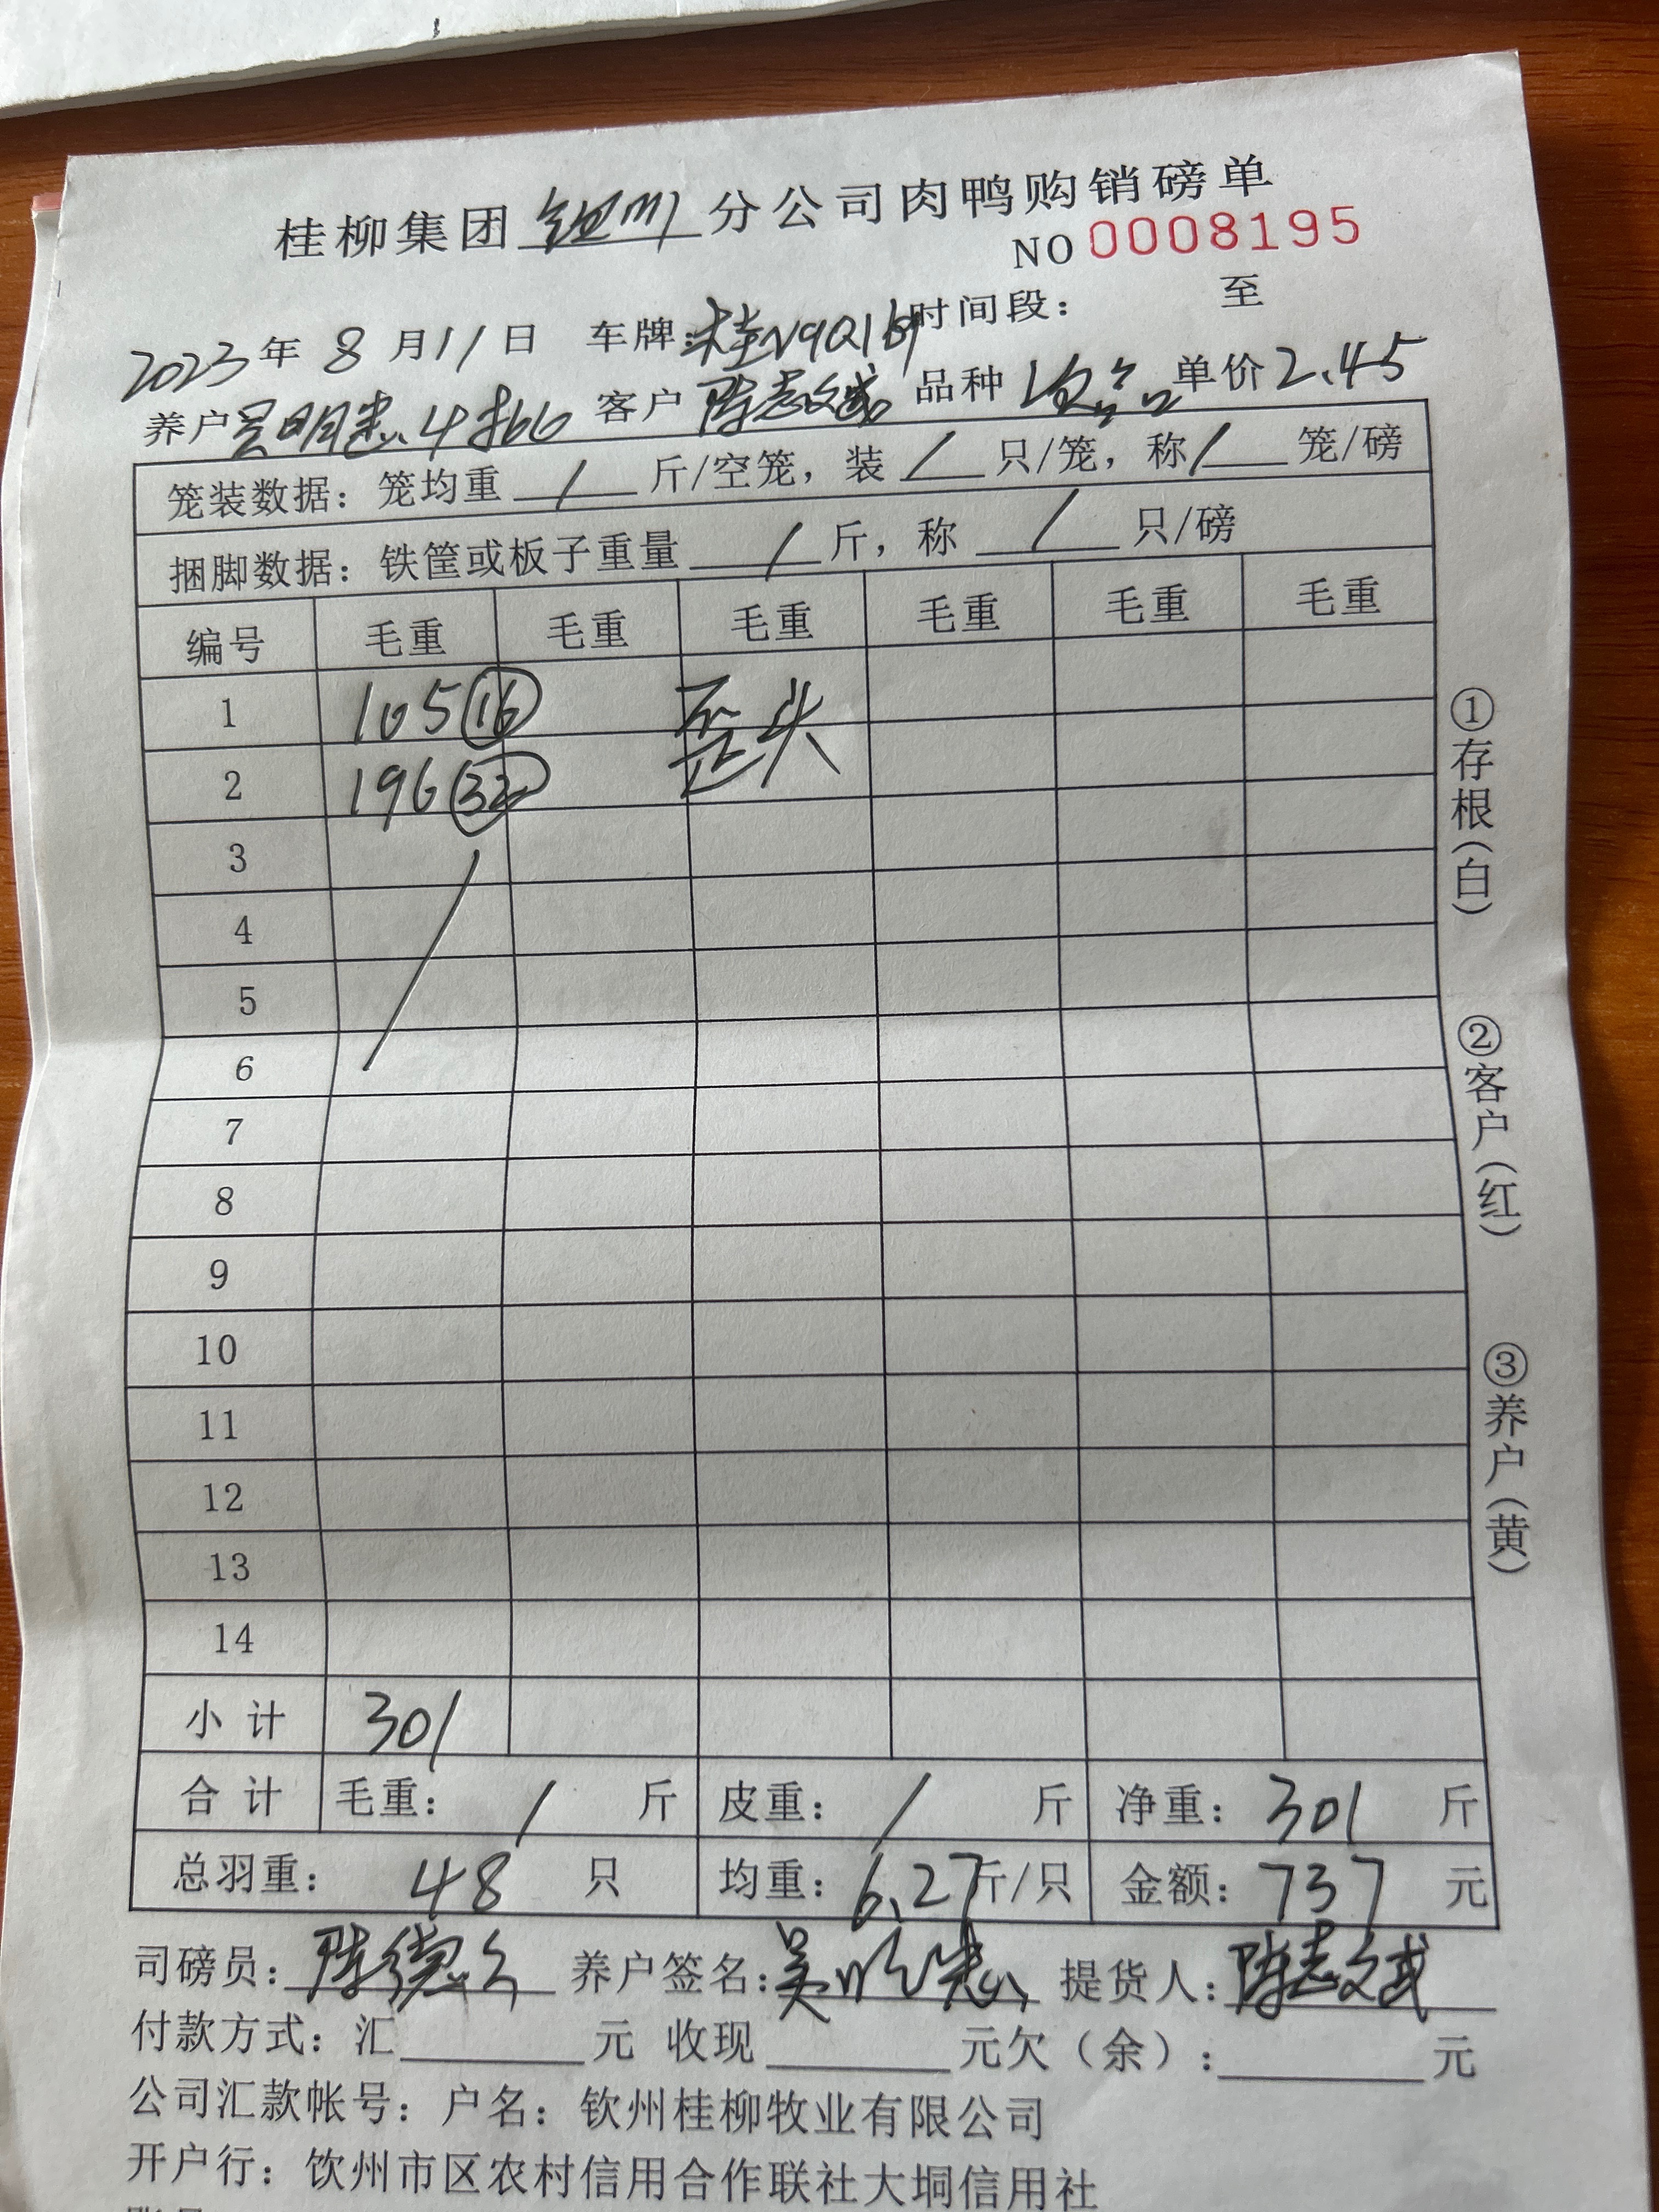 桂柳集团钦州分公司肉鸭购销磅单
NO 0008195
2023年 8 月11日 车牌:桂N9Q169时间段： 至
养户吴明忠 4批66 客户 陈志斌 品种 单价2.45
笼装数据：笼均重 / 斤/空笼，装 / 只/笼，称 / 笼/磅
捆脚数据：铁筐或板子重量 / 斤，称 / 只/磅
编号 毛重 毛重 毛重 毛重 毛重 毛重
1 105 (16) 歪头
2 196 (32)
3
4
5
6
7
8
9
10
11
12
13
14
小 计 301
合 计 毛重： / 斤 皮重： / 斤 净重： 301 斤
总羽重： 48 只 均重：6.27斤/只 金额：737 元
司磅员：陈德 养户签名：吴明忠 提货人：陈志斌
付款方式：汇 元 收现 元欠（余）： 元
公司汇款帐号：户名：钦州桂柳牧业有限公司
开户行：钦州市区农村信用合作联社大垌信用社
①存根（白）
②客户（红）
③养户（黄）